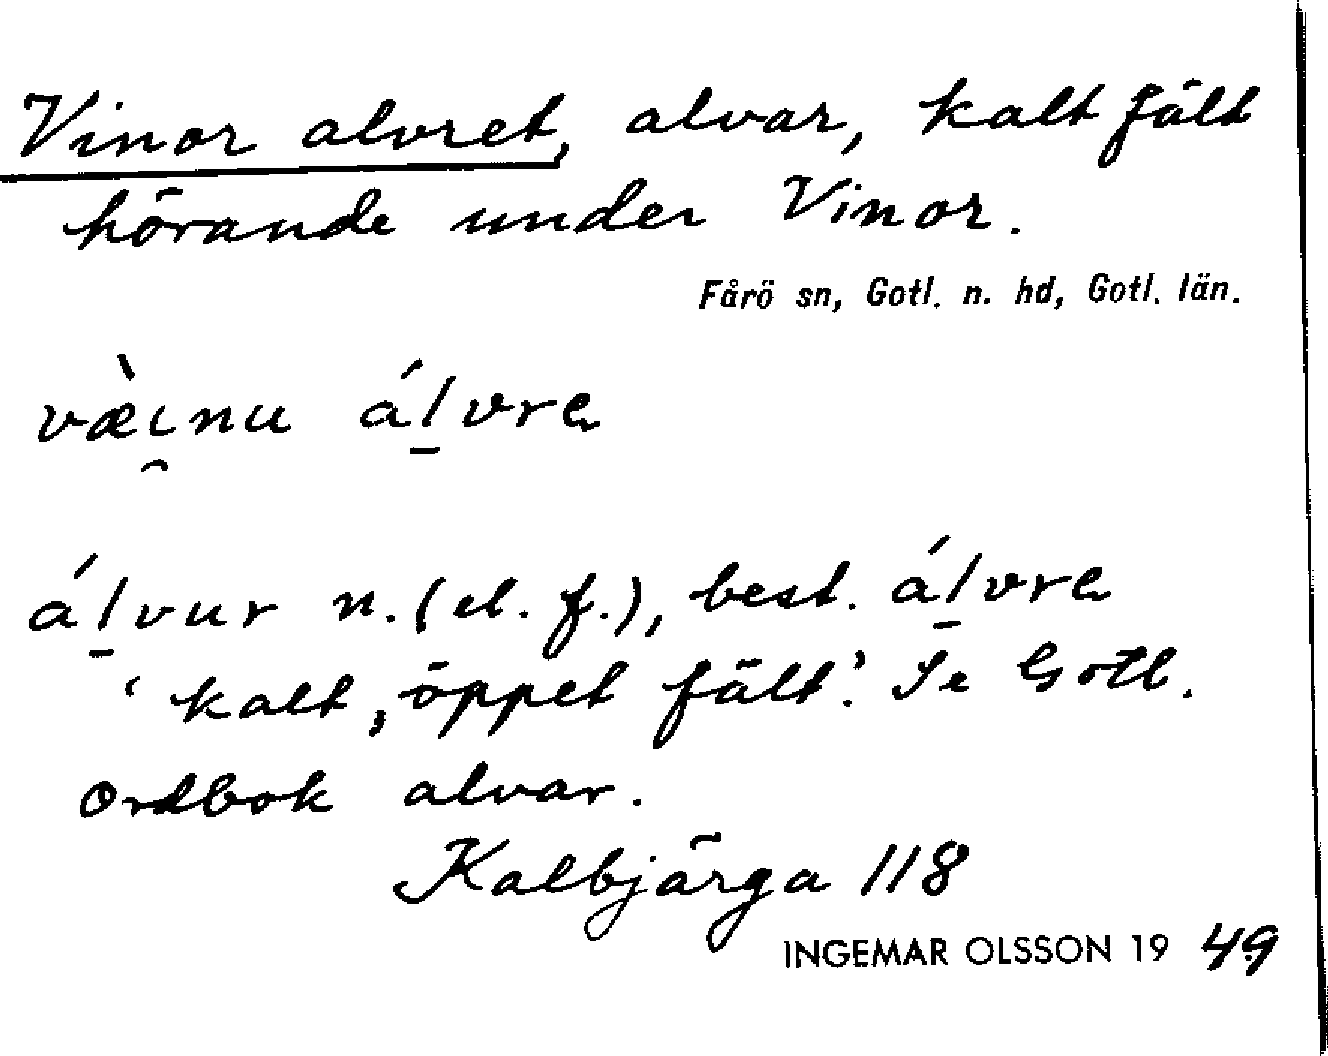 Vinor alvret, alvar, kalt fält
hörande under Vinor.
Fårö sn, Gotl. n. hd, Gotl. län.
væ̀i̯nu ál̠vrə
ál̠vur n. (el. f.), best. ál̠vrə
‘kalt, öppet fält’. Se Gotl.
Ordbok alvar.
Kalbjärga 118
INGEMAR OLSSON 19 49